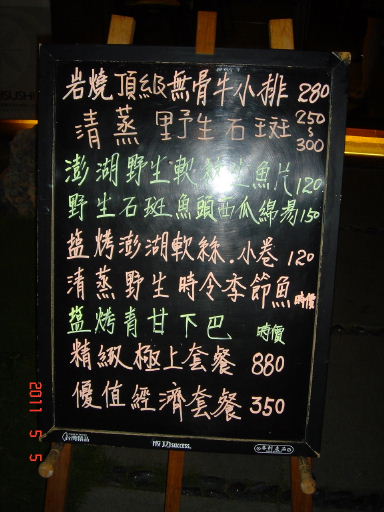 岩燒頂級無骨牛小排 280
清蒸野生石斑 250~300
澎湖野生軟絲 魚片 120
野生石斑魚頭西瓜綿湯 150
塩烤澎湖軟絲.小卷 120
清蒸野生時令季節魚 時價
塩烤青甘下巴 時價
精緻極上套餐 880
優值經濟套餐 350
success.
2011 5 5